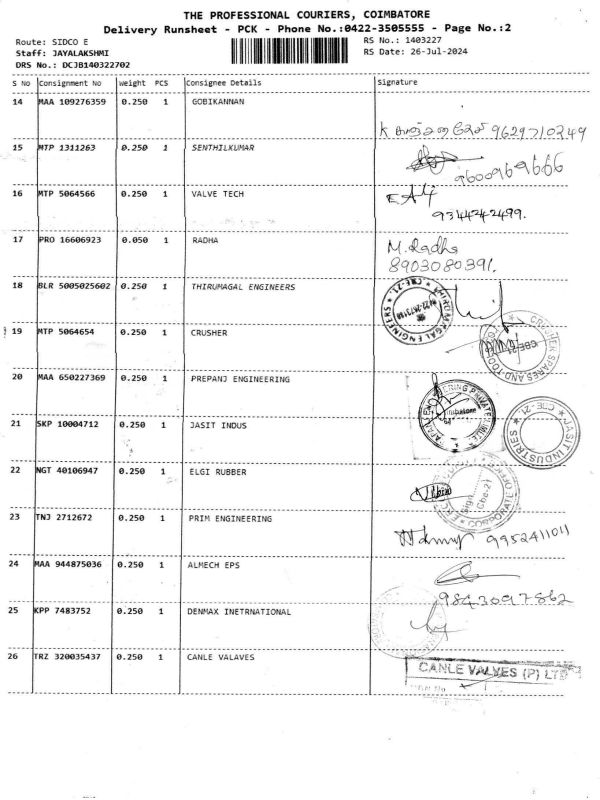 THE PROFESSIONAL COURIERS, COIMBATORE
Delivery Runsheet - PCK - Phone No.:0422-3505555 - Page No.:2
Route: SIDCO E
RS No.: 1403227
Staff: JAYALAKSHMI
RS Date: 26-Jul-2024
DRS No.: DCJB140322702
S No Consignment No Weight PCS Consignee Details Signature
14 MAA 109276359 0.250 1 GOBIKANNAN
9629710349
15 MTP 1311263 0.250 1 SENTHILKUMAR
9600969666
16 MTP 5064566 0.250 1 VALVE TECH
9344242499.
17 PRO 16606923 0.050 1 RADHA
M. Radha
8903080391.
18 BLR 5005025602 0.250 1 THIRUMAGAL ENGINEERS
THIRUMAGAL ENGINEERS CBE-21.
19 MTP 5064654 0.250 1 CRUSHER
SPARES AND TOOLS CBE-21
20 MAA 650227369 0.250 1 PREPANJ ENGINEERING
21 SKP 10004712 0.250 1 JASIT INDUS
JASIT INDUSTRIES CBE-21.
22 NGT 40106947 0.250 1 ELGI RUBBER
CORPORATE
Sign
Cbe-21
23 TNJ 2712672 0.250 1 PRIM ENGINEERING
9952411011
24 MAA 944875036 0.250 1 ALMECH EPS
9843097862
25 KPP 7483752 0.250 1 DENMAX INETRNATIONAL
26 TRZ 320035437 0.250 1 CANLE VALAVES
CANLE VALVES (P) LTD